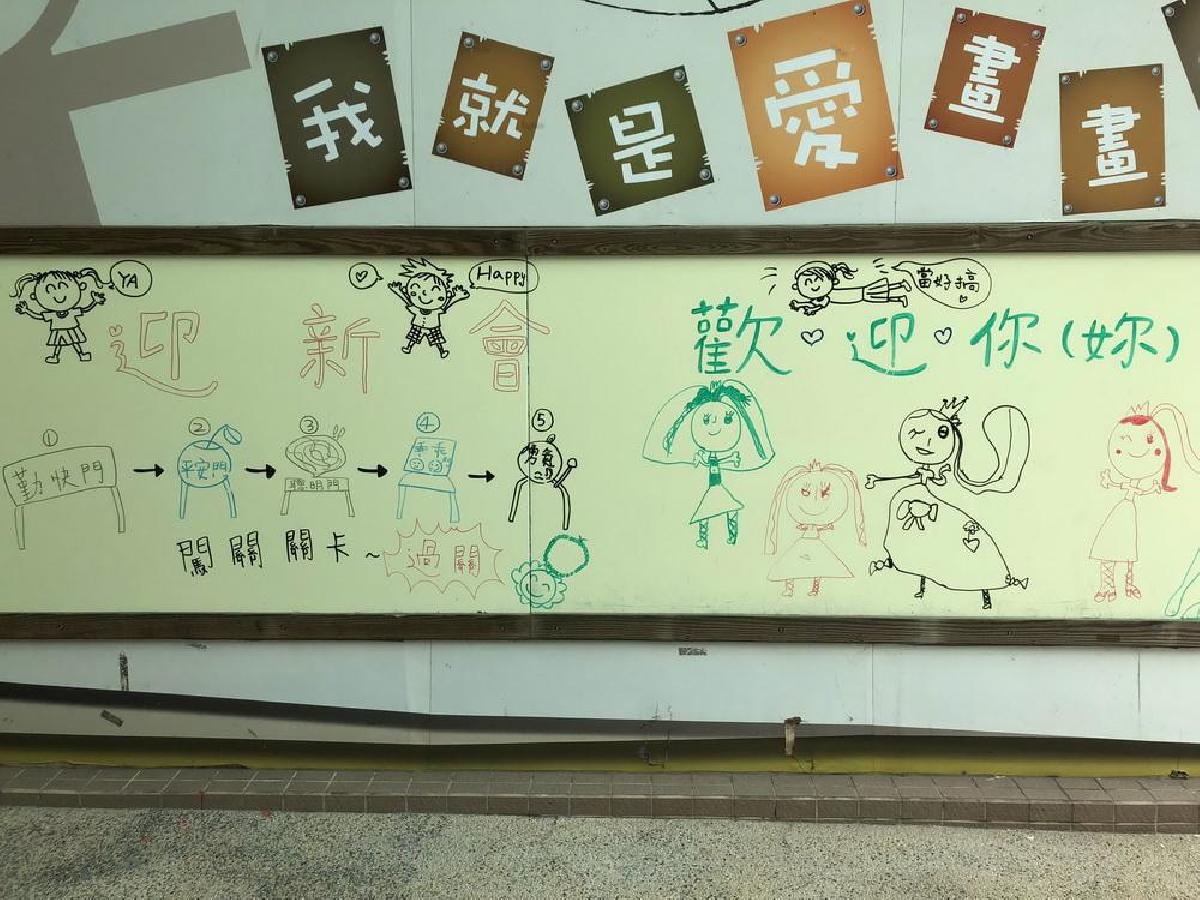 我就是愛畫畫
YA
Happy
當好搞
迎新會
歡迎你(妳)
① ② ③ ④ ⑤
勤快門
平安門
聰明門
闖關關卡~
過關